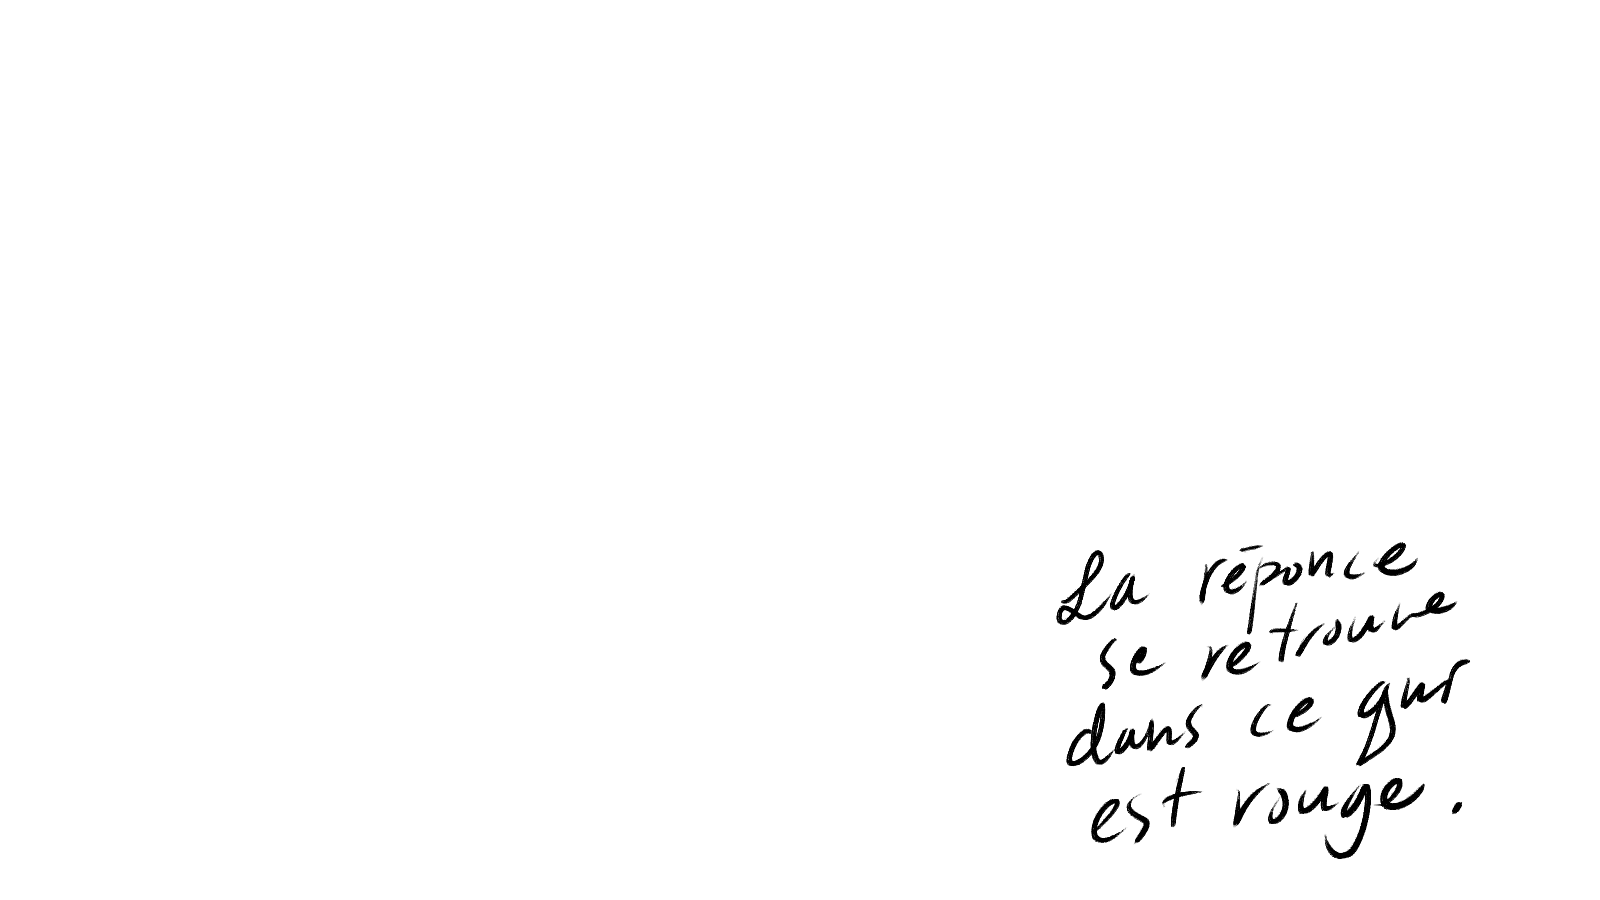 La réponce
se retrouve
dans ce qui
est rouge.